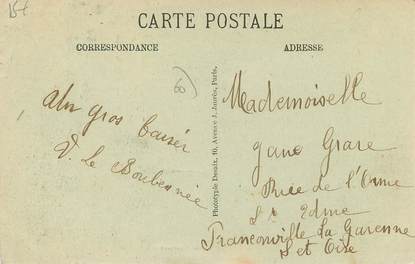 15+
CARTE POSTALE
CORRESPONDANCE
ADRESSE
8)
un gros baiser
V. Le
Phototypie Desaix, 10, Avenue J. Jaurès, Paris.
Mademoiselle
Jane Grare
Rue de l'Orme
St Edme
Franconville la Garenne
S et Oise